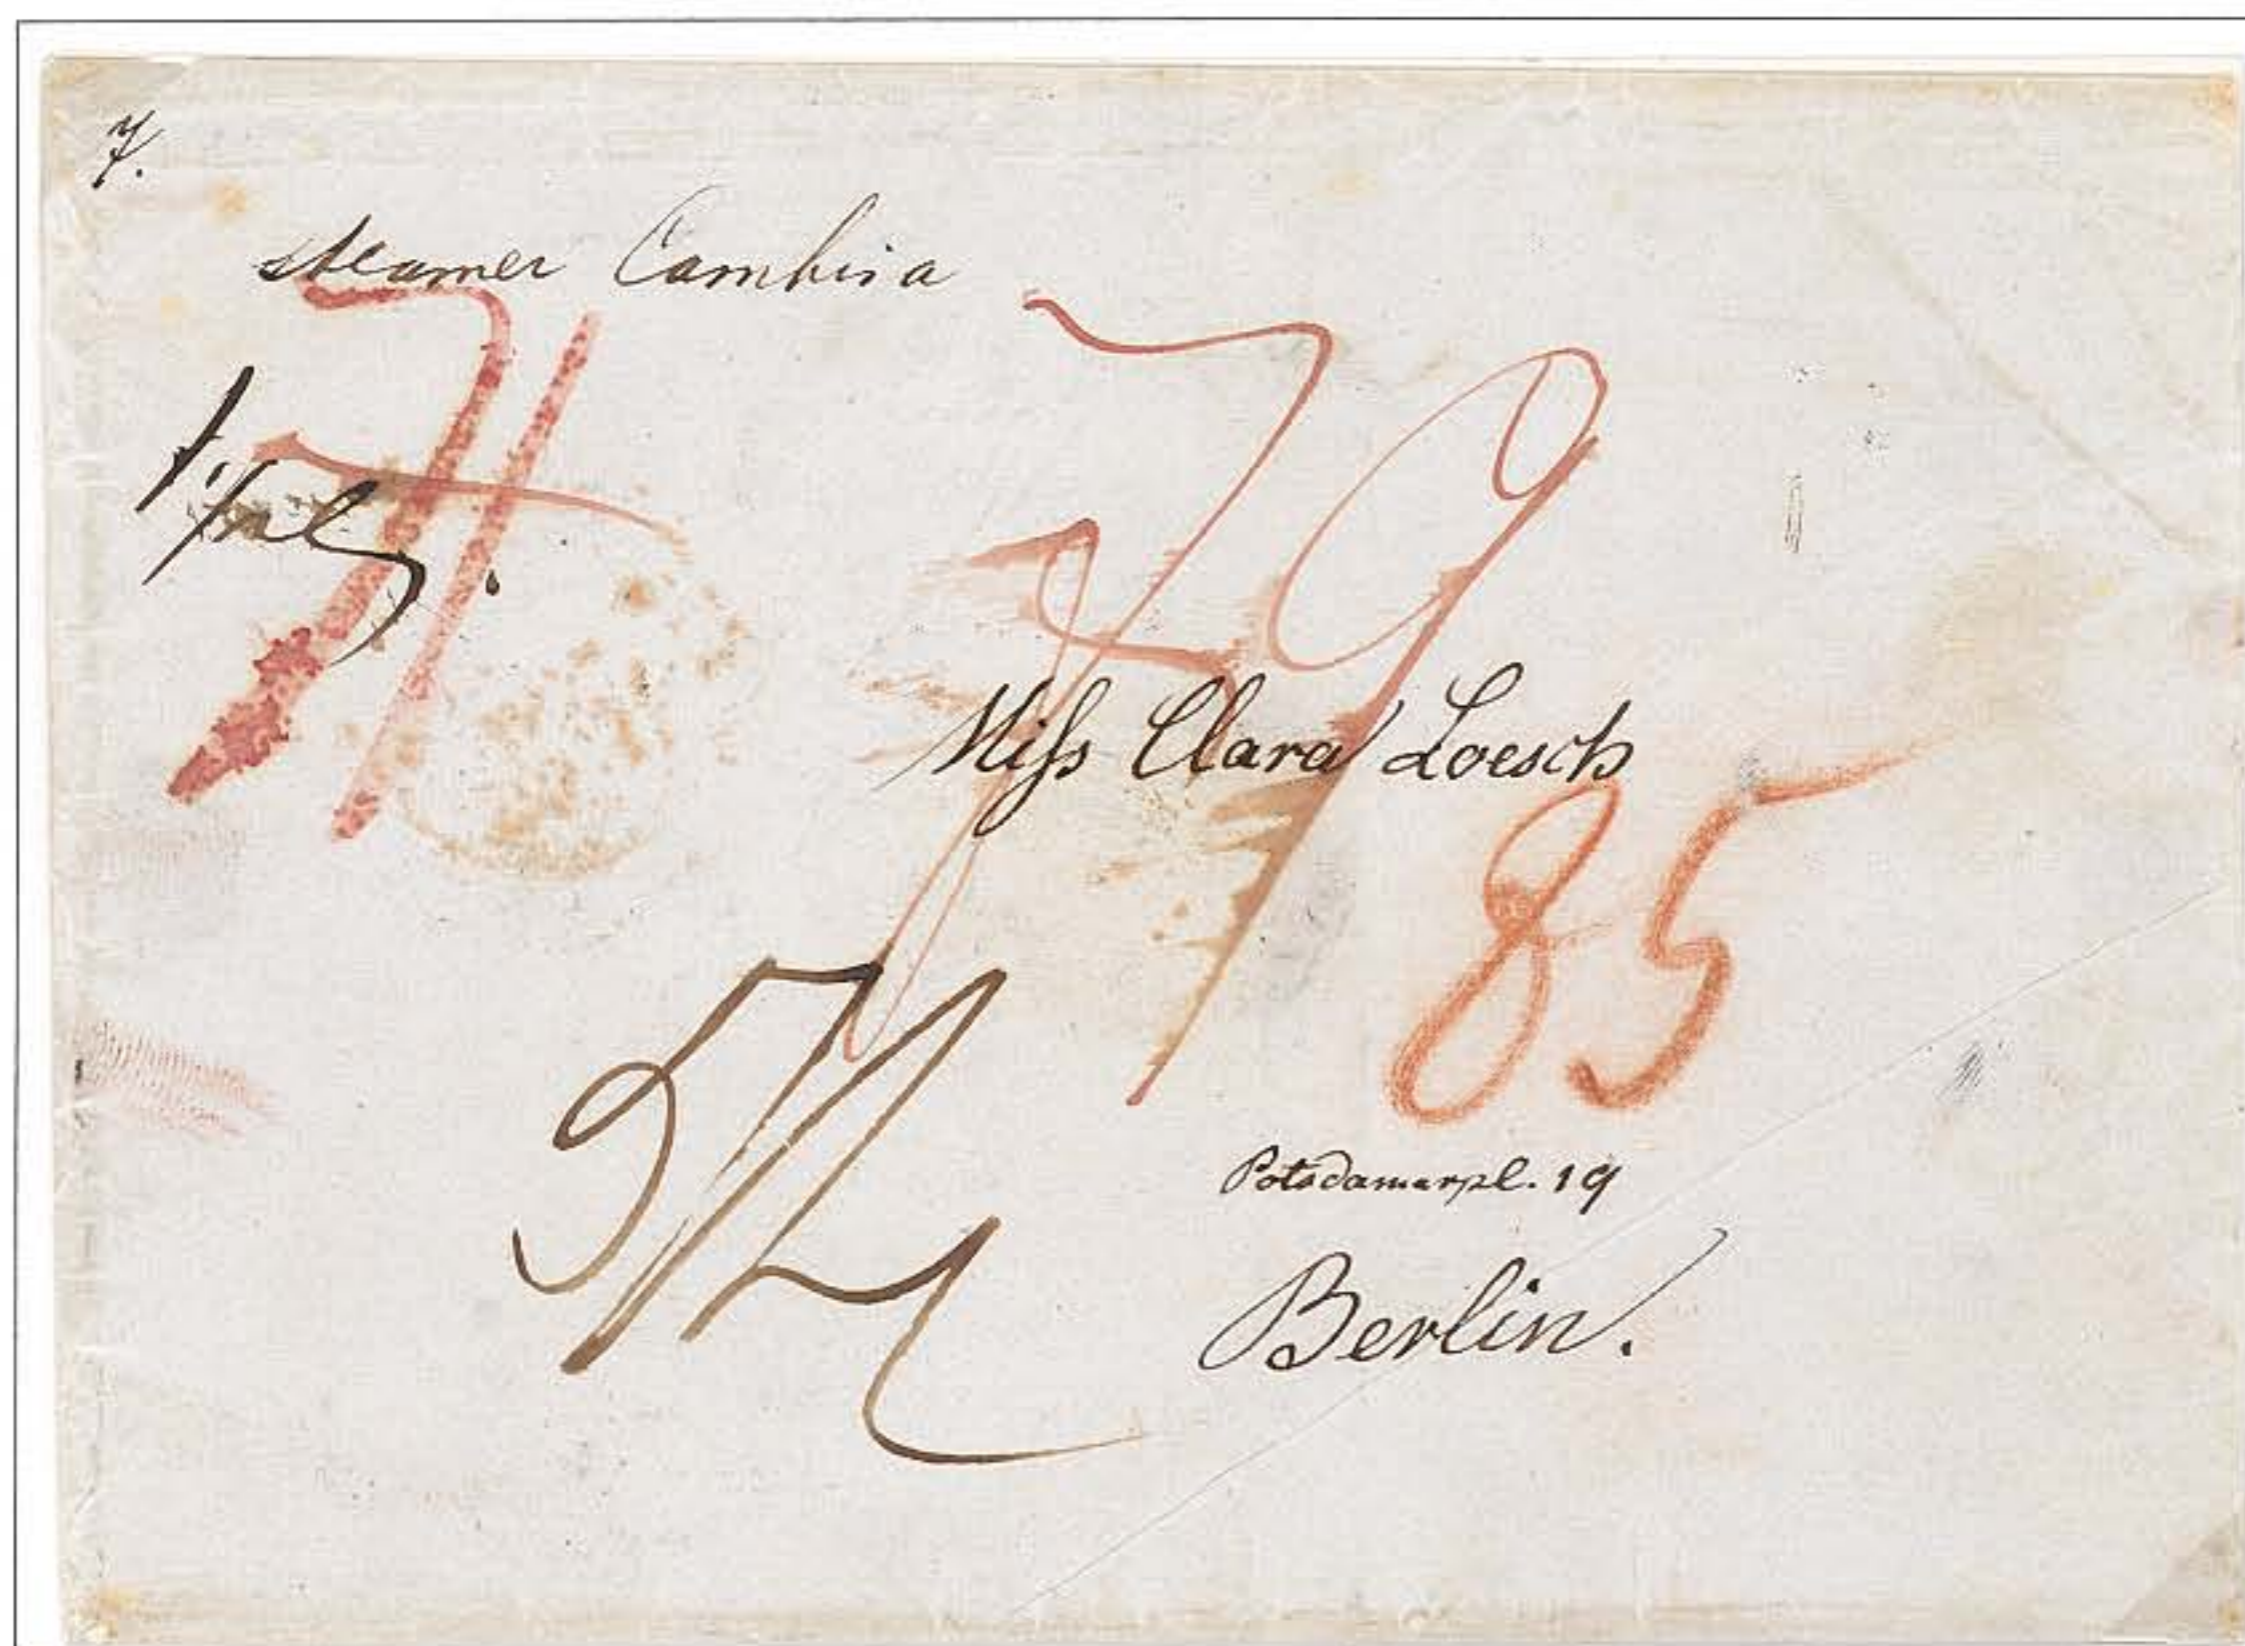 7.
steamer Cambria
79
Miss Clara Loesch
85
Potsdamerpl. 19
Berlin.